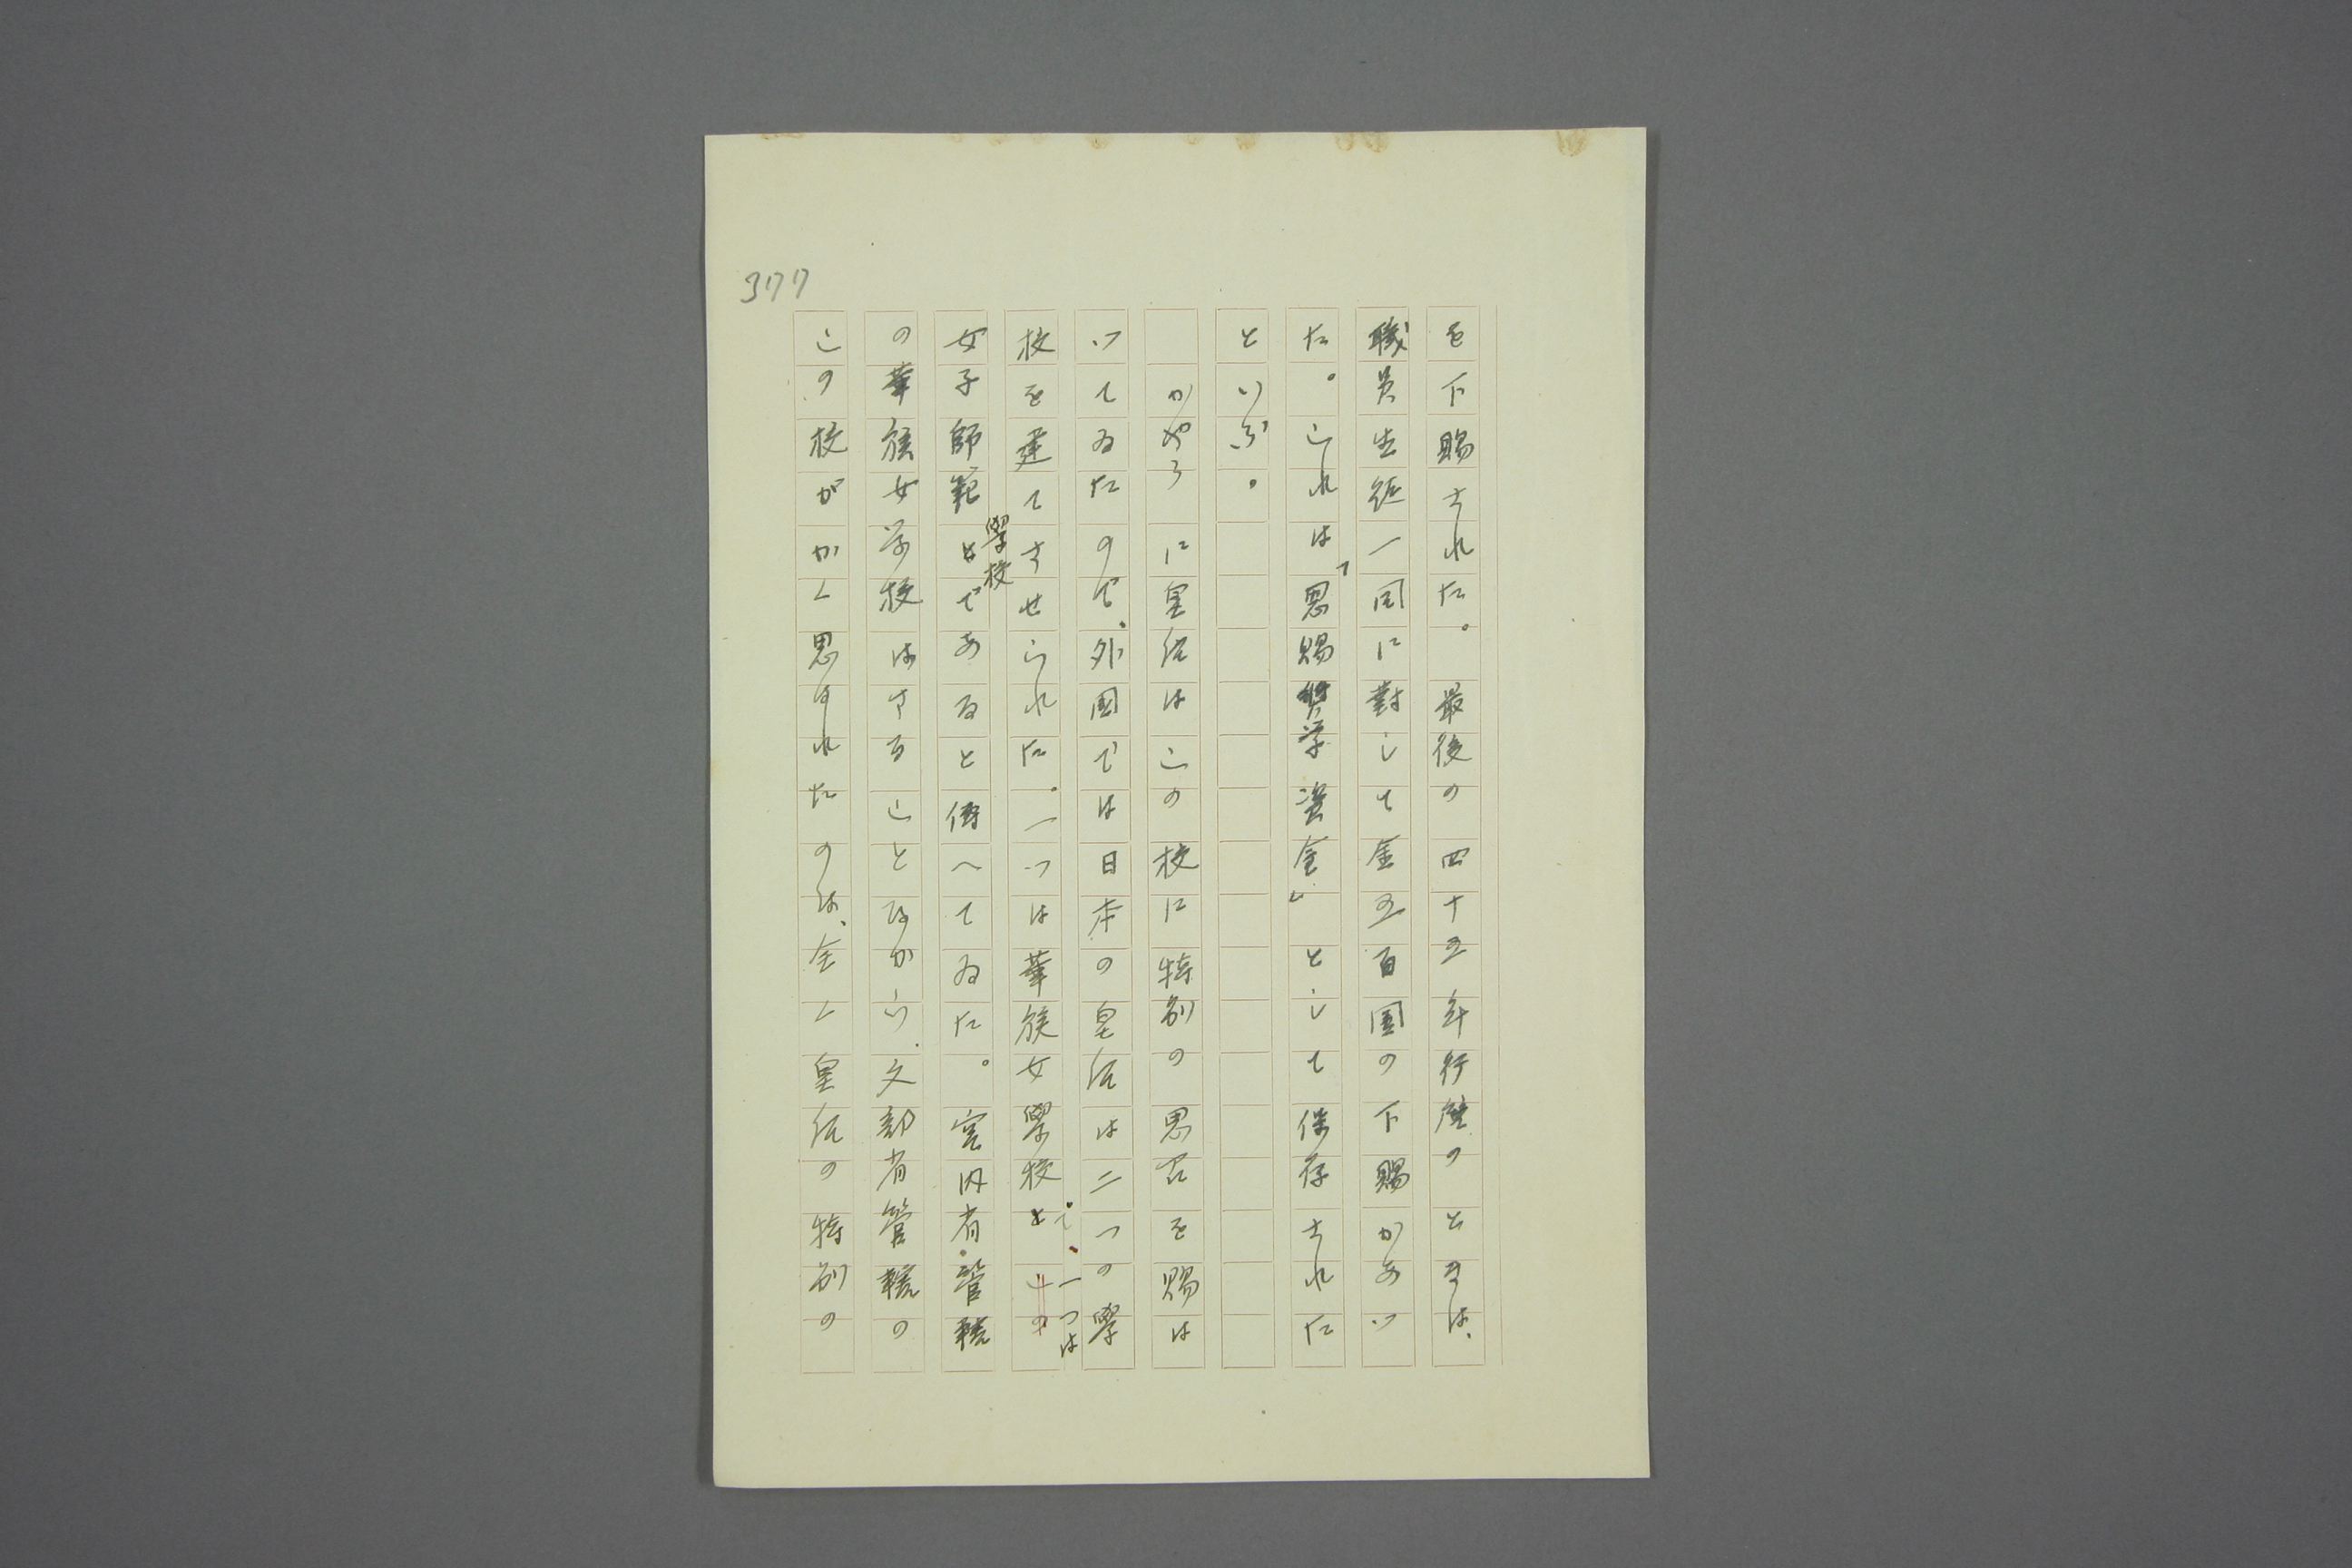 377
を下賜された。最後の四十五年行啓のときは、
職員生徒一同に對して金五百圓の下賜があつ
た。これは「恩賜奬学資金」として保存された
といふ。
かやうに皇后はこの校に特別の思召を賜は
つてゐたので、外國では日本の皇后は二つの學
校を建てさせられた。一つは華族女學校で、一つは
女子師範學校であると傳へてゐた。宮内省管轄
の華族女学校はさることながら、文部省管轄の
この校がかく思はれたのは、全く皇后の特別の